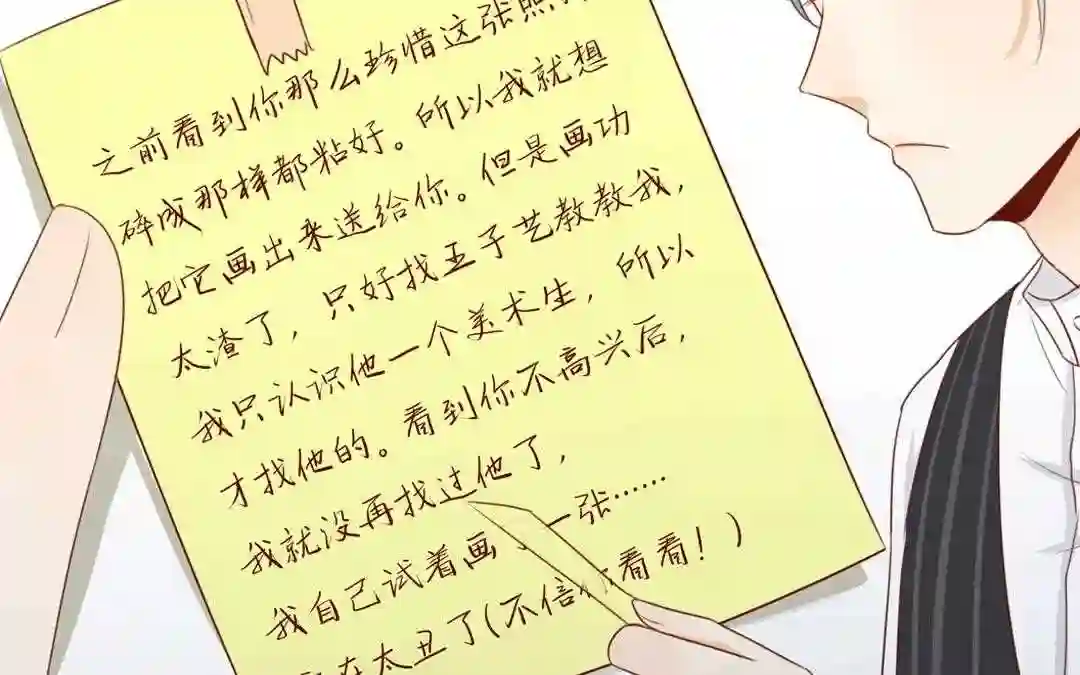 之前看到你那么珍惜这张照
碎成那样都粘好。所以我就想
把它画出来送给你。但是画功
太渣了，只好找王子艺教教我，
我只认识他一个美术生，所以
才找他的。看到你不高兴后，
我就没再找过他了，
我自己试着画 一张……
在太丑了(不信 看看！)